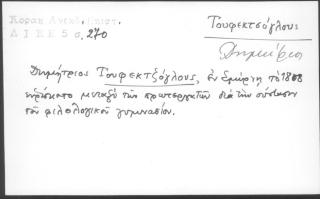 Κοραῆ Ἀνέκδ. ἐπιστ.
Δ Ι Ε Ε 5 σ. 270
Τουφεκτσόγλους
Δημήτριος
Δημήτριος Τουφεκτζόγλους, ἐν Σμύρνῃ τὸ 1808
εὑρίσκετο μεταξὺ τῶν πρωτεργατῶν διὰ τὴν σύστασιν
τοῦ φιλολογικοῦ γυμνασίου.